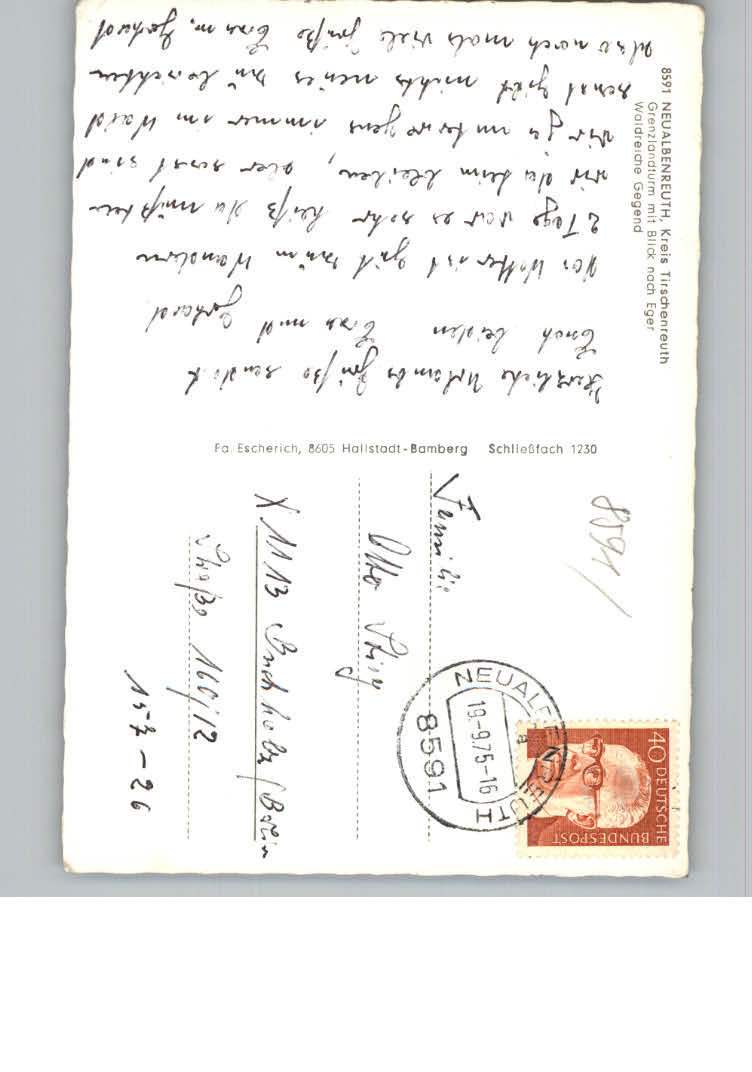 8591 NEUALBENREUTH, Kreis Tirschenreuth
Grenzlandturm mit Blick nach Eger
Waldreiche Gegend
Herzliche Urlaubs Grüße sendet
Euch beiden Erna und Gerhard.
Das Wetter ist gut zum Wandern
2 Tage war es sehr heiß da mußten
wir daheim bleiben, aber sonst sind
wir ja unterwegs immer im Wald
sonst gibt nichts neues zu berichten
also noch mals viele Grüße Erna u. Gerhard
Fa. Escherich, 8605 Hallstadt-Bamberg Schließfach 1230
8591/
Familie
Otto
X 1113 Buchholz/Berlin
Straße 160/12
157-26
NEUALBENREUTH
19.-9.75-16
a
8591
40 DEUTSCHE
BUNDESPOST